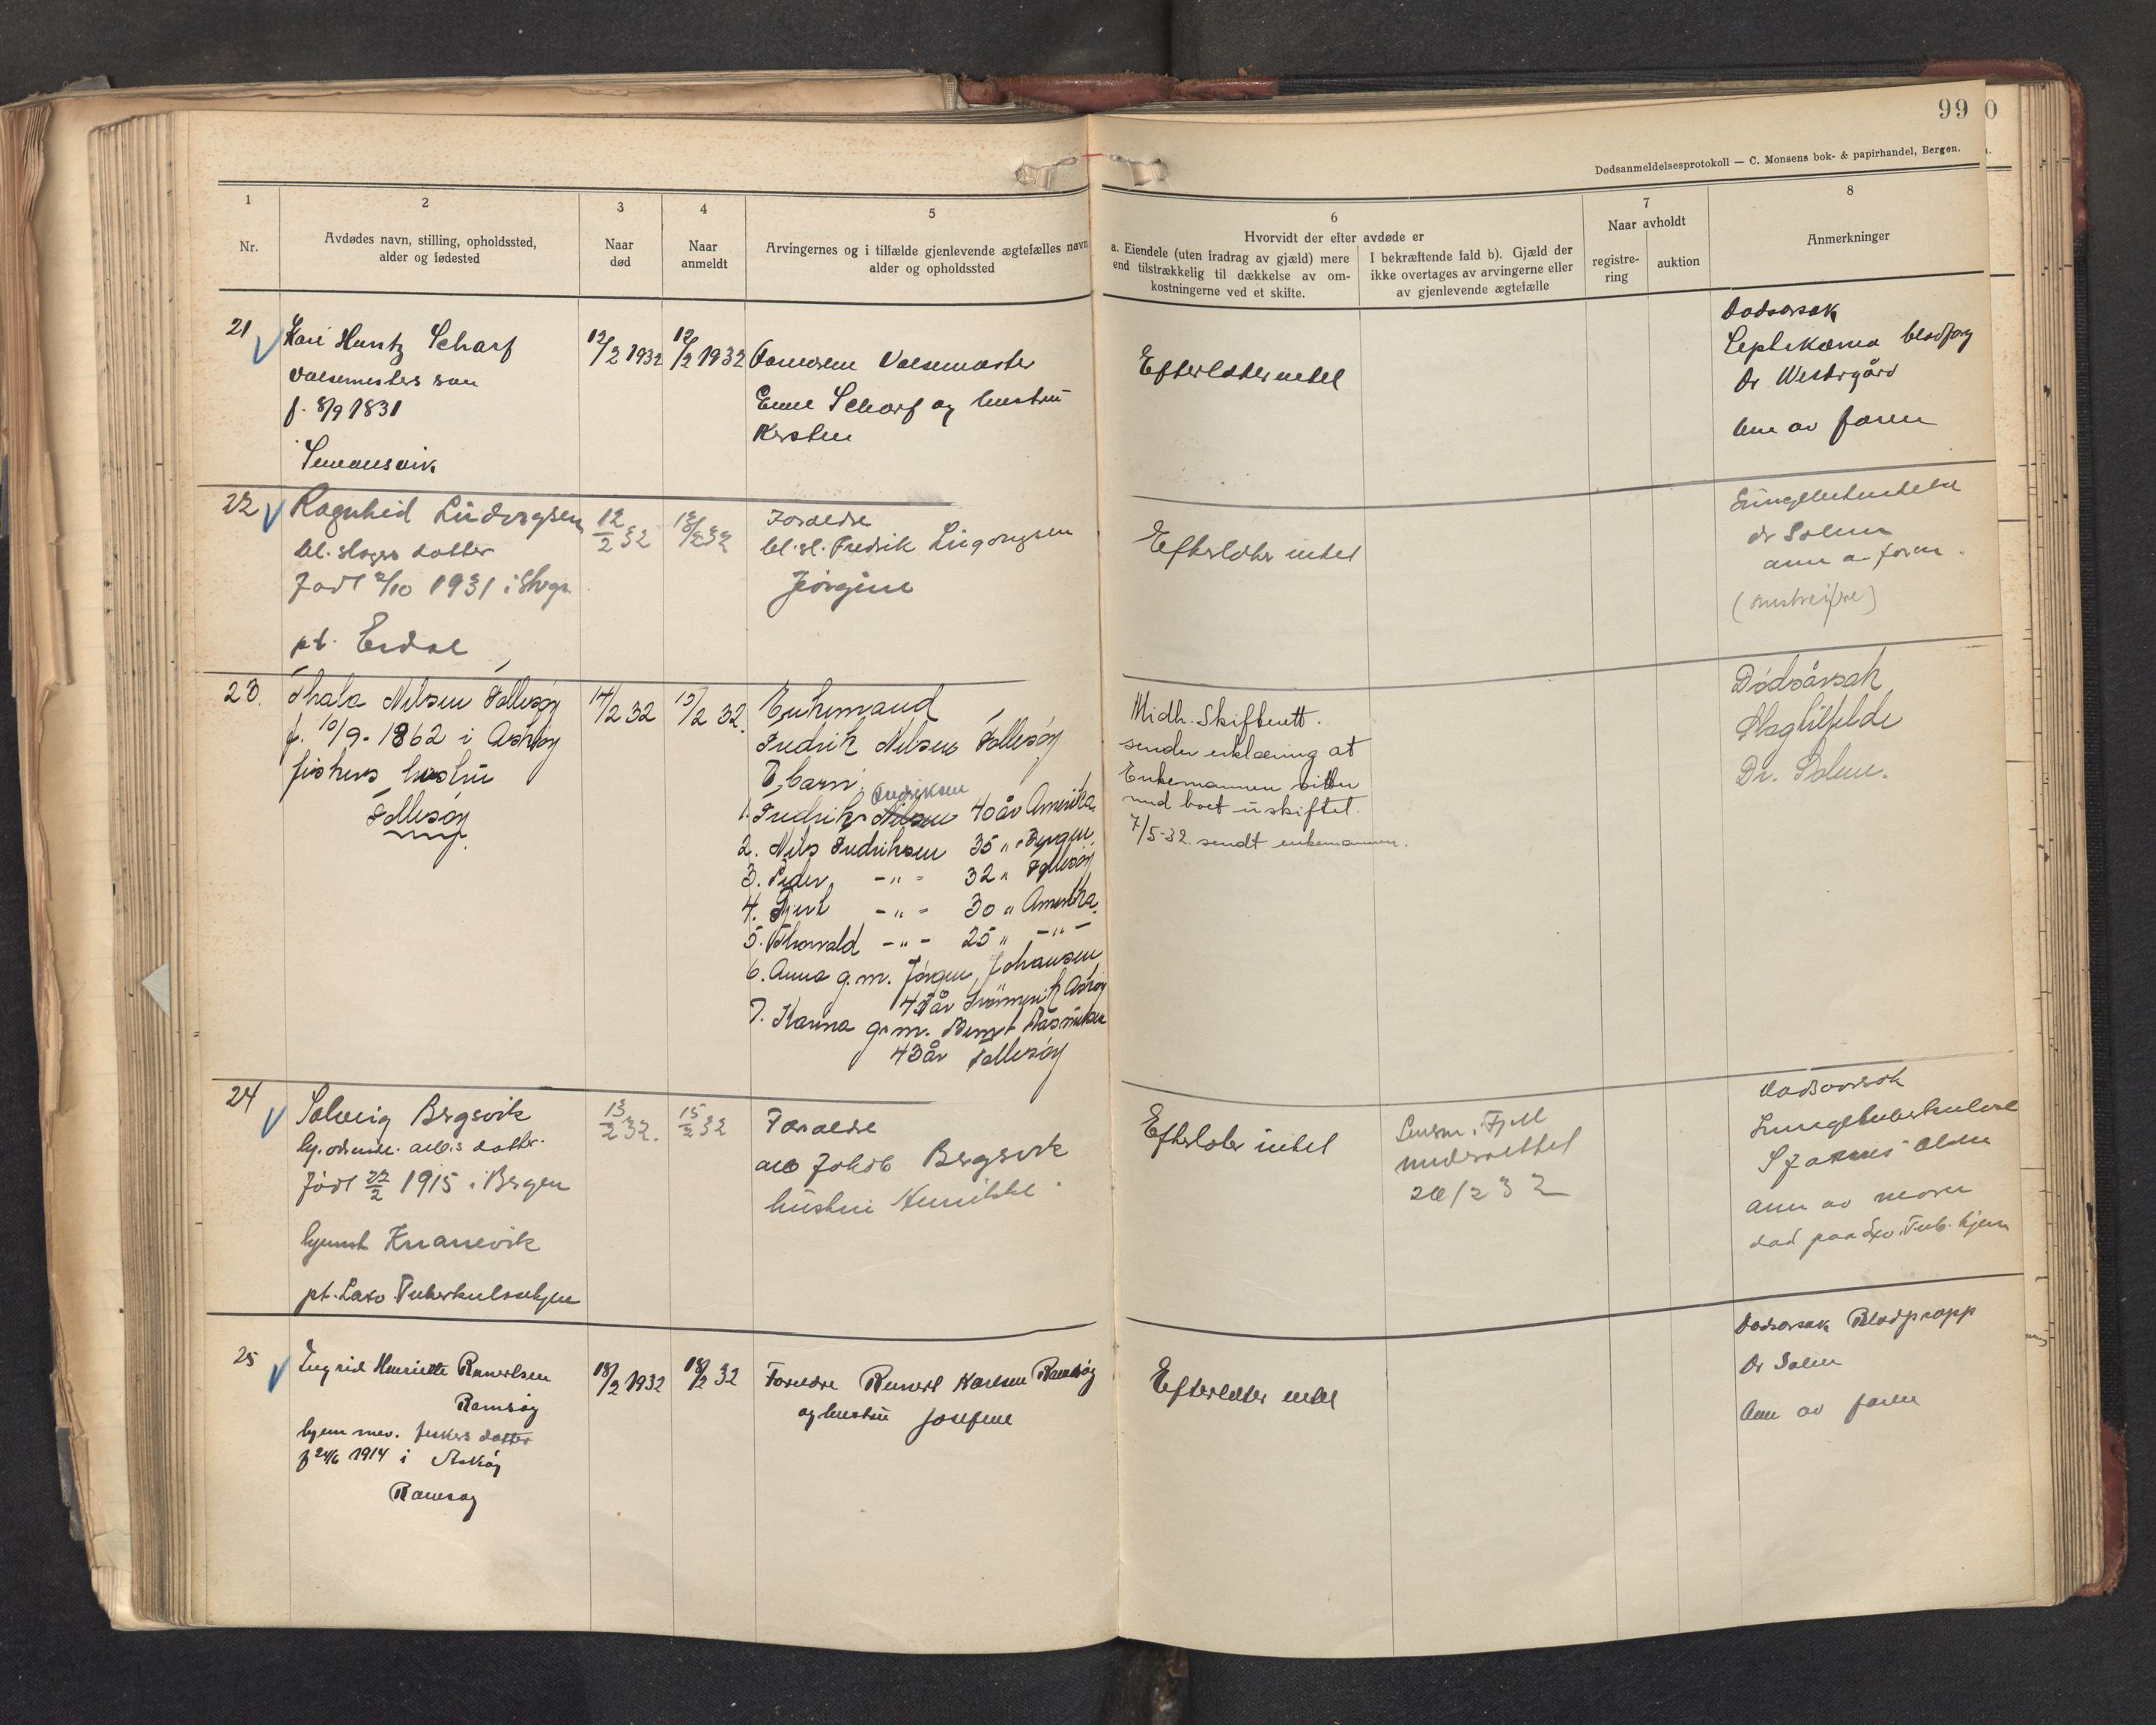 99 0
Dødsanmeldelsesprotokoll — C. Monsens bok- & papirhandel, Bergen.
1
2
3
4
5
Nr.
Avdødes navn, stilling, opholdssted,
alder og fødested
Naar
død
Naar
anmeldt
Arvingernes og i tilfælde gjenlevende ægtefælles navn
alder og opholdssted
6
Hvorvidt der efter avdøde er
a. Eiendele (uten fradrag av gjæld) mere
end tilstrækkelig til dækkelse av om-
kostningerne ved et skifte.
I bekræftende fald b). Gjæld der
ikke overtages av arvingerne eller
av gjenlevende ægtefælle
7
Naar avholdt
registre-
ring
auktion
8
Anmerkninger
21
Scharf
f. 8/9 1831
12/2 1932
12/2 1932
Scharf og hustru
Efterlater intet
Dødsorsak
Dr Westrgård
av faren
22
Ragnhild
datter
Født 2/10 1931 i
pt. Erdal
12/2 32
13/2 32
Foreldre
Fredrik
Jørgine
Efterlater intet
dr Solem
23.
Thala Nilsen Follesøy
f. 10/9-1862 i Askøy
fiskers hustru
Follesøy
14/2 32
15/2 32.
Enkemand
Fredrik Nilsen Follesøy
7 barn:
Fredriksen
1. Fredrik Nilsen 40 år Amerika.
2. Nils Fredriksen 35 " Bergen.
3. Peder -"- 32 " Follesøy
4. -"- 30 " Amerika.
5. Thorvald -"- 25 " -"-
6. Anna g.m. Jørgen Johansen
år Askøy
7. Karina g.m. Bernt Rasmussen
43 år Follesøy
Midh. Skifterett.
sender erklæring at
Enkemannen sitter
med boet uskiftet.
7/5-32. sendt enkemannen.
Dødsårsak
Slagtilfelde
Dr. Solem.
24
Solveig Bergsvik
datter
Født 1915 i Bergen
hjemst Knarrevik
pt. Tuberkulosehjem
13/2 32.
15/2 32
Foreldre
arb Jakob Bergsvik
hustru Henrikke
Efterlater intet
Lensm. i Fjell
underrettet
20/2 32
Dødsorsak
Lungetuberkulose
anm av moren
død paa Tub. hjem
25
Ingrid Henriette Runertsen
Ramsøy
hjem mev. fiskers datter
f 24/6 1914 i Askøy
Ramsøy
18/2 1932
18/2 32
Foreldre Runert Karlsen Ramsøy
og hustru Josefine
Efterlater intet
Dødsorsak Blodpropp
Dr Solem
Anm av faren